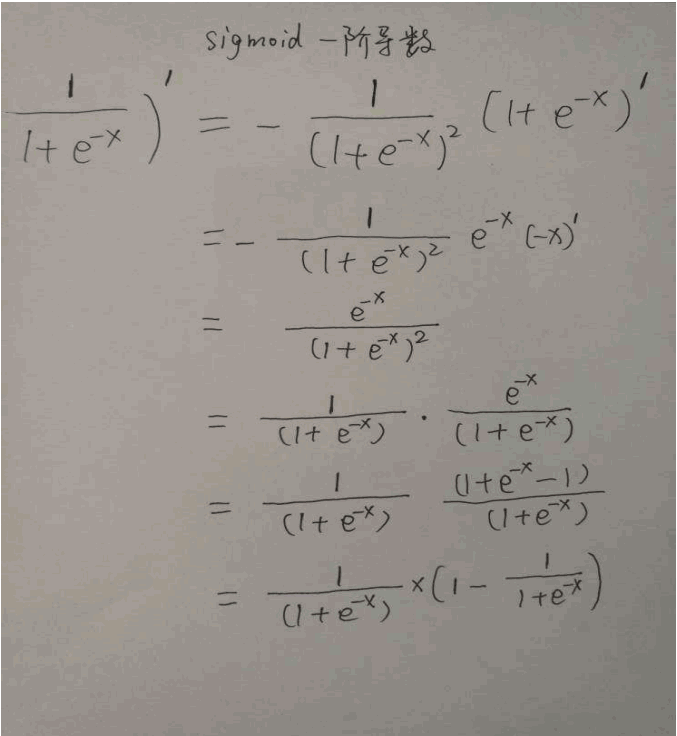 sigmoid 一阶导数
\frac{1}{1+e^{-x}})' = -\frac{1}{(1+e^{-x})^2}(1+e^{-x})'
= -\frac{1}{(1+e^{-x})^2} e^{-x}(-x)'
= \frac{e^{-x}}{(1+e^{-x})^2}
= \frac{1}{(1+e^{-x})} · \frac{e^{-x}}{(1+e^{-x})}
= \frac{1}{(1+e^{-x})} \frac{(1+e^{-x}-1)}{(1+e^{-x})}
= \frac{1}{(1+e^{-x})} × (1-\frac{1}{1+e^{-x}})